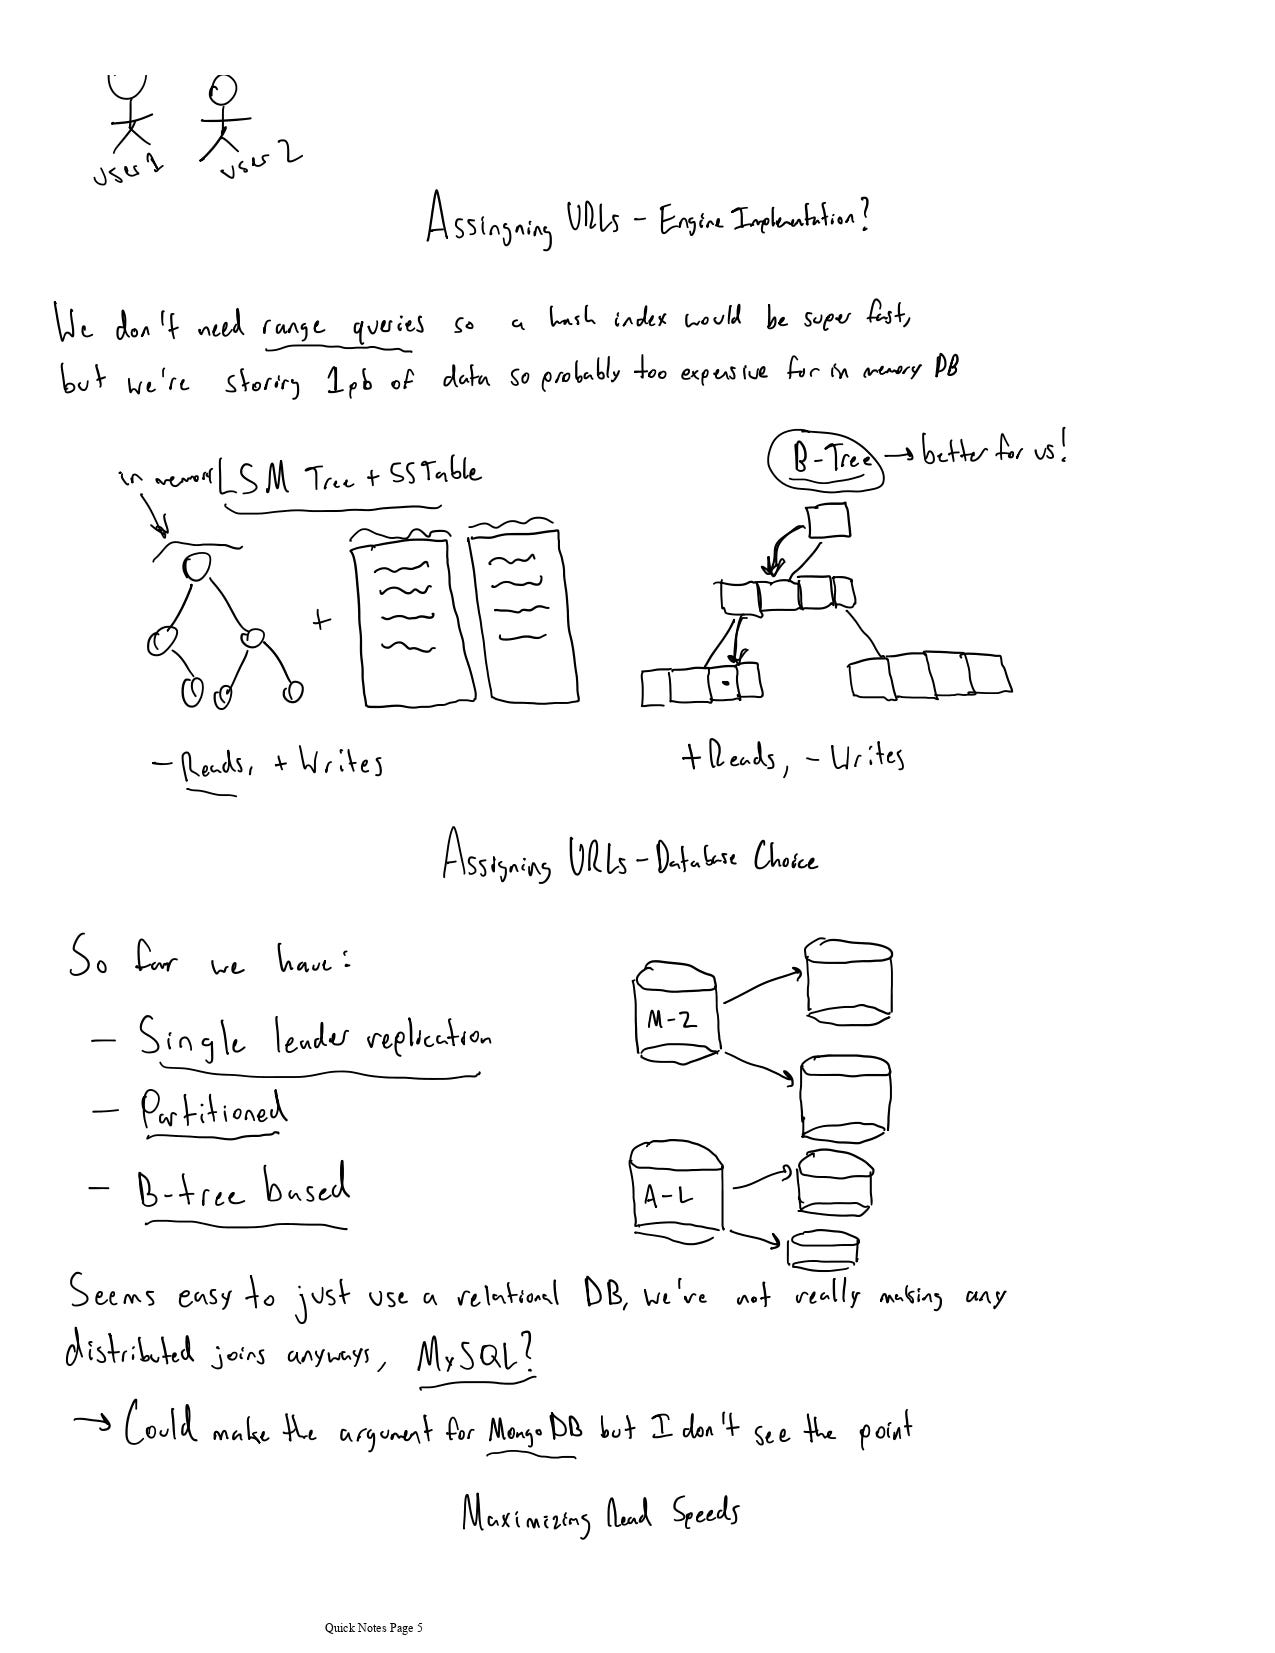 User 1
User 2
Assingning URLs - Engine Implementation?
We don't need range queries so a hash index would be super fast,
but we're storing 1pb of data so probably too expensive for in memory DB
in memory
LSM Tree + SSTable
B-Tree → better for us!
+
- Reads, + Writes
+ Reads, - Writes
Assigning URLs - Database Choice
So far we have:
- Single leader replication
- Partitioned
- B-tree based
M-Z
A-L
Seems easy to just use a relational DB, we're not really making any
distributed joins anyways, MySQL?
→ Could make the argument for MongoDB but I don't see the point
Maximizing Read Speeds
Quick Notes Page 5